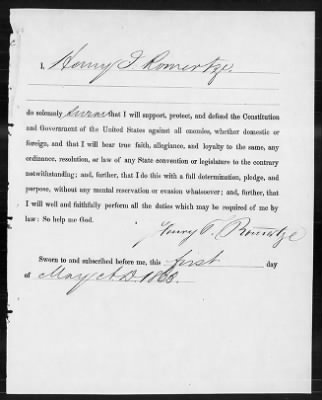 I, Henry T. Romertze.
do solemnly swear that I will support, protect, and defend the Constitution
and Government of the United States against all enemies, whether domestic
or foreign, and that I will bear true faith, allegiance, and loyalty to the same, any
ordinance, resolution, or law of any State convention or legislature to the contrary
notwithstanding; and, further, that I do this with a full determination, pledge, and
purpose, without any mental reservation or evasion whatsoever; and, further, that
I will well and faithfully perform all the duties which may be required of me by
law: So help me God.
Henry T. Romertze
Sworn to and subscribed before me, this first day
of May A.D. 1863.